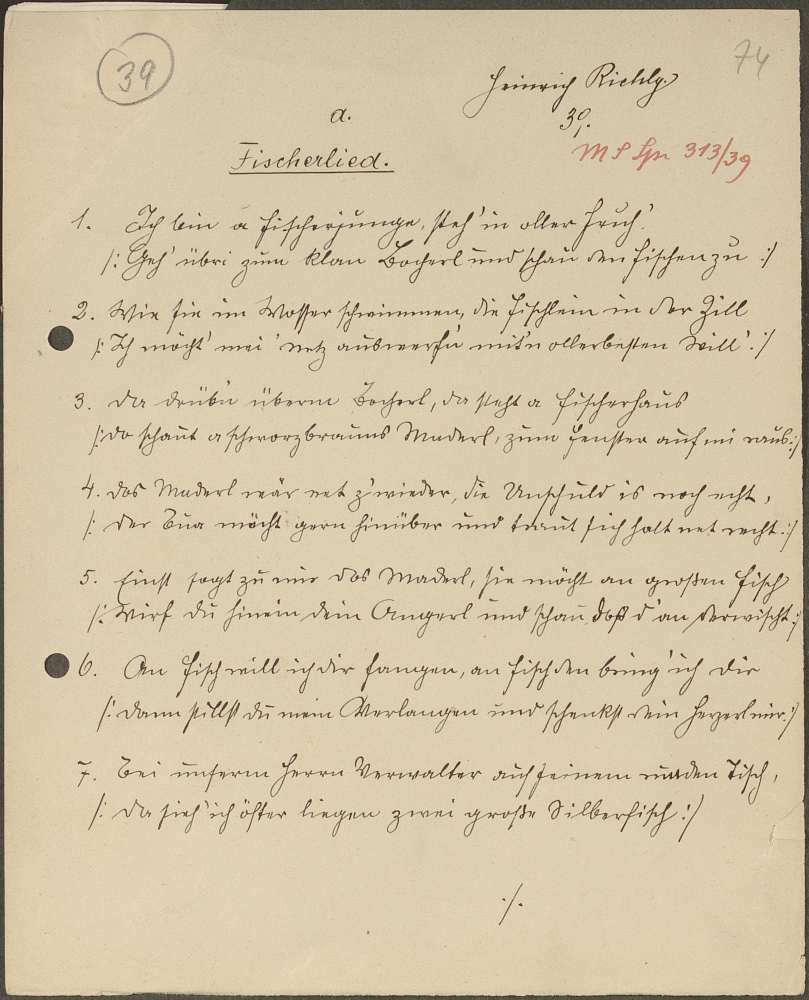 39
74
Heinrich Richly
39.
a.
MS Spr 313/39
Fischerlied.
1. Ich bin a Fischerjunge, steh' in oller Fruh'
/: Geh' übri zum klan Bocherl und schau den Fischen zu :/
2. Wie sie im Wosser schwimmen, die Fischlein in der Zill
/: Ich möcht' mei' Netz auswerf'n mit'n ollerbesten Will'. :/
3. Da drüb'n überm Bocherl, da steht a Fischerhaus
/: Do schaut a schworzbrauns Maderl, zum Fenster auf mi raus :/
4. Das Maderl wär net z'wieder, die Unschuld is noch echt,
/: Der Bua möcht gern hinüber und traut sich halt net recht. :/
5. Einst sagt zu mir das Maderl, sie möcht an großen Fisch
/: Wirf du hinein dein Angerl und schau doß d'an derwischt. :/
6. An Fisch will ich dir fangen, an Fisch den bring' ich dir
/: Dann stillst du mein Verlangen und schenkst dein Herzerl mir. :/
7. Bei unserm Herrn Verwalter auf seinem runden Tisch,
/: Da sieh' ich öfter liegen zwei große Silberfisch :/
./.